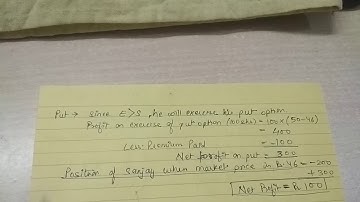 Put → Since E>S, he will exercise his put option
Profit on exercise of put option (100 shs) = 100 x (50-46)
= 400
Less: Premium Paid = -100
Net Profit on put = 300
Position of Sanjay when market price is Rs. 46 = -200
+300
Net Profit = Rs. 100